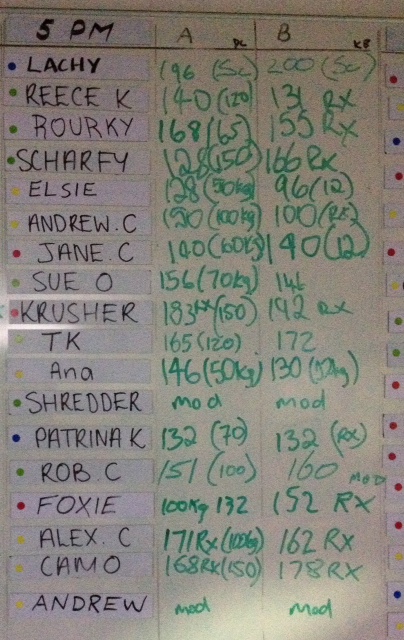 5 PM A DL B KB
LACHY 196 (Sc) 200 (Sc)
REECE K 140 (120) 131 RX
ROURKY 168 (65) 155 RX
SCHARFY 128 (150) 166 RX
ELSIE 128 (50kg) 96 (12)
ANDREW.C 190 (100kg) 100 (RX)
JANE.C 140 (60kg) 140 (12)
SUE O 156 (70kg) 146
KRUSHER 183 (150) 142 RX
TK 165 (120) 172
Ana 146 (50kg) 130 (12kg)
SHREDDER mod mod
PATRINA K 132 (70) 132 (RX)
ROB.C 151 (100) 160 MOD
FOXIE 100kg 132 152 RX
ALEX.C 171RX (100kg) 162 RX
CAMO 168RX (150) 178RX
ANDREW mod mod